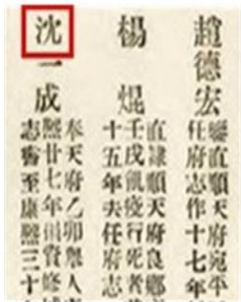 趙德宏
直隸順天府宛平
任府志作十七年
楊焜
直隸順天府良鄉
壬戌飢疫行死者
十五年去任府志
沈一成
奉天府乙卯舉人
熙廿七年捐資修
志書至康熙三十